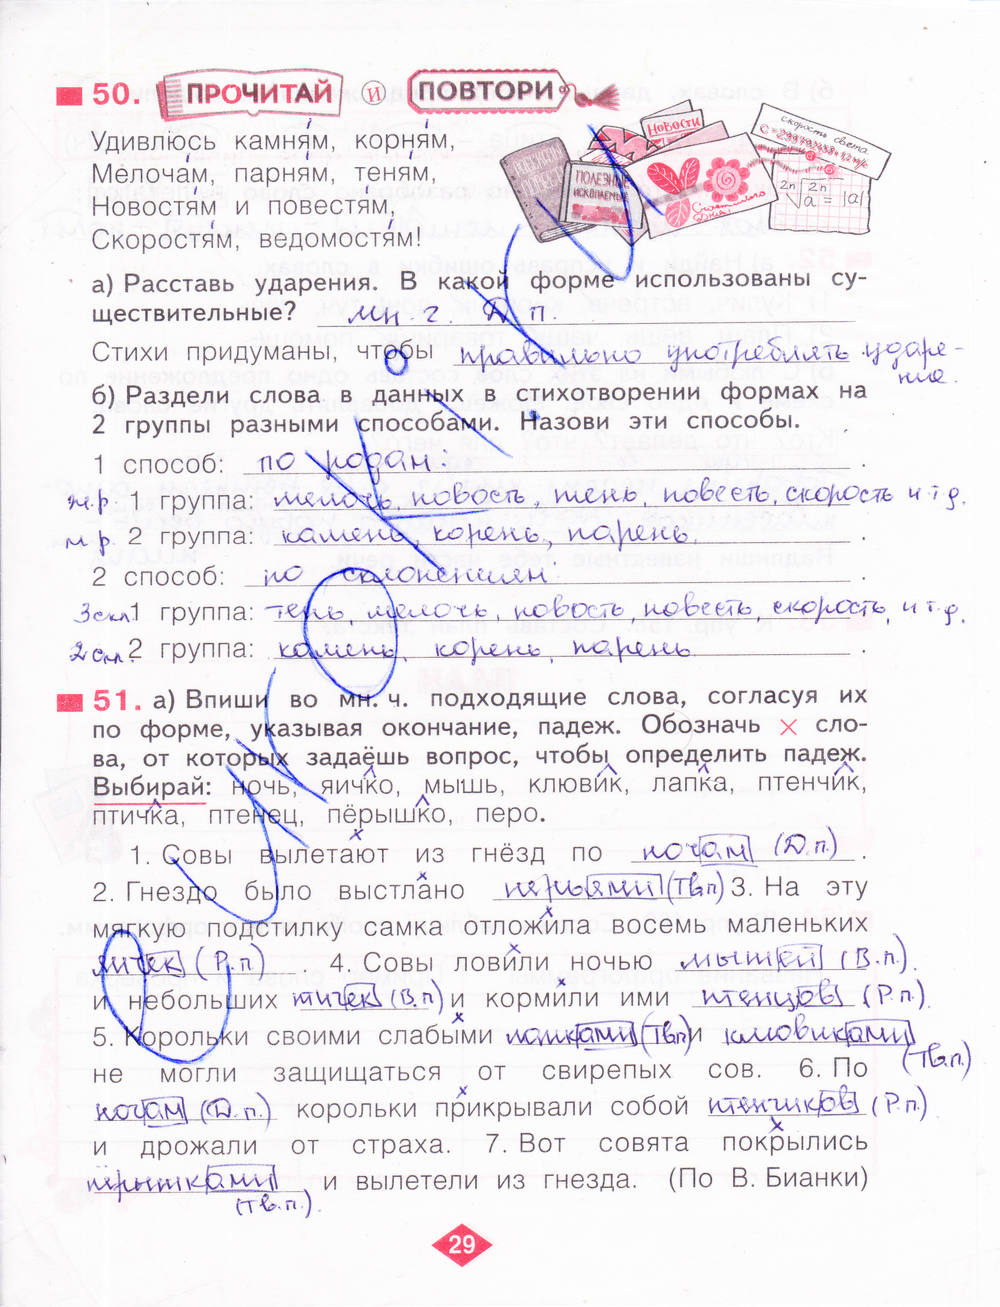 50. ПРОЧИТАЙ И ПОВТОРИ
Удивлюсь камням, корням,
Мелочам, парням, теням,
Новостям и повестям,
Скоростям, ведомостям!
НОВОСТИ
ПОЛЕЗНЫЕ ИСКОПАЕМЫЕ
скорость света
Счастливого дня!
а) Расставь ударения. В какой форме использованы су-
ществительные? мн. ч. Д. п.
Стихи придуманы, чтобы правильно употреблять ударе-
ние.
б) Раздели слова в данных в стихотворении формах на
2 группы разными способами. Назови эти способы.
1 способ: по родам: .
ж.р. 1 группа: мелочь, новость, тень, повесть, скорость и т.д.
м.р. 2 группа: камень, корень, парень. .
2 способ: по склонениям: .
3скл. 1 группа: тень, мелочь, новость, повесть, скорость, и т.д.
2скл. 2 группа: камень, корень, парень .
51. а) Впиши во мн. ч. подходящие слова, согласуя их
по форме, указывая окончание, падеж. Обозначь × сло-
ва, от которых задаёшь вопрос, чтобы определить падеж.
Выбирай: ночь, яичко, мышь, клювик, лапка, птенчик,
птичка, птенец, пёрышко, перо.
1. Совы вылетают из гнёзд по ночам (Д.п.) .
2. Гнездо было выстлано перьями (Тв.п) 3. На эту
мягкую подстилку самка отложила восемь маленьких
яичек (Р.п.) 4. Совы ловили ночью мышей (В.п.)
и небольших птичек (В.п) и кормили ими птенцов (Р.п.).
5. Корольки своими слабыми лапками (Тв.п) и клювиками
(Тв.п.)
не могли защищаться от свирепых сов. 6. По
ночам (Д.п.) корольки прикрывали собой птенчиков (Р.п.)
и дрожали от страха. 7. Вот совята покрылись
пёрышками и вылетели из гнезда. (По В. Бианки)
(Тв.п.).
29